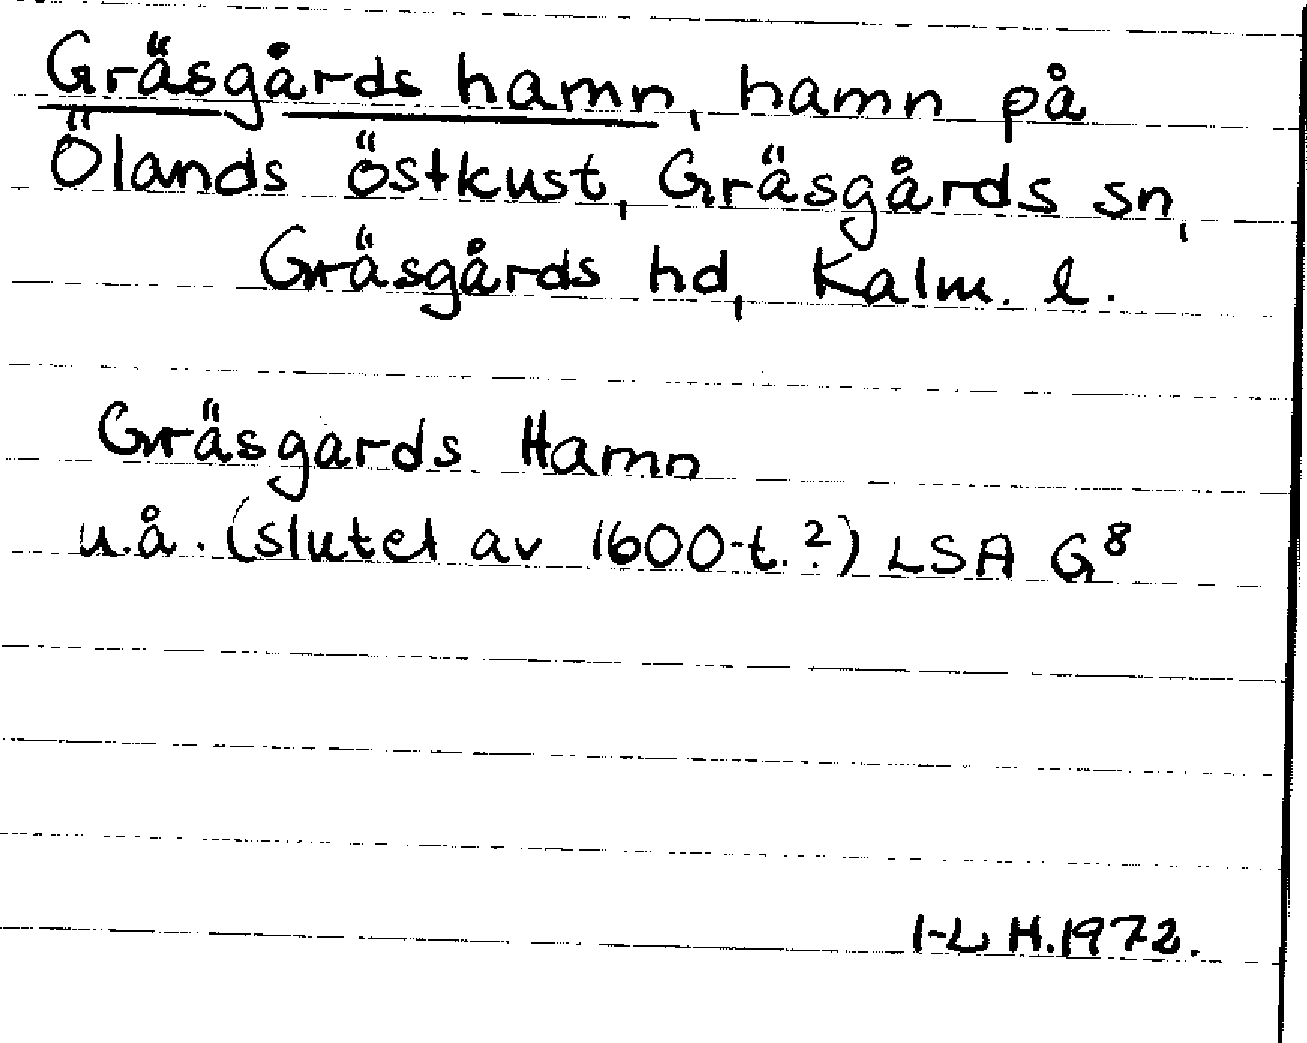 Gräsgårds hamn, hamn på
Ölands östkust, Gräsgårds sn,
Gräsgårds hd, Kalm. l.
Gräsgards Hamn
u.å. (slutet av 1600-t.?) LSA G8
I-L H.1972.